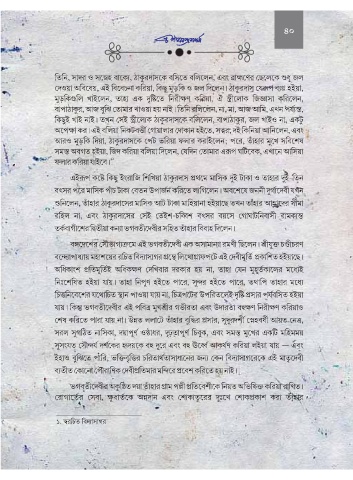 ৪০
তিনি, সাদর ও সস্নেহ বাক্যে, ঠাকুরদাসকে বসিতে বলিলেন, এবং ব্রাহ্মণের ছেলেকে শুধু জল
দেওয়া অবিধেয়, এই বিবেচনা করিয়া, কিছু মুড়কি ও জল দিলেন। ঠাকুরদাস যেরূপ ব্যগ্র হইয়া,
মুড়কিগুলি খাইলেন, তাহা এক দৃষ্টিতে নিরীক্ষণ করিয়া, ঐ স্ত্রীলোক জিজ্ঞাসা করিলেন,
বাপাঠাকুর, আজ বুঝি তোমার খাওয়া হয় নাই। তিনি বলিলেন, না, মা, আজ আমি, এখন পর্য্যন্ত,
কিছুই খাই নাই। তখন সেই স্ত্রীলোক ঠাকুরদাসকে বলিলেন, বাপাঠাকুর, জল খাইও না, একটু
অপেক্ষা কর। এই বলিয়া নিকটবর্ত্তী গোয়ালার দোকান হইতে, সত্বর, দই কিনিয়া আনিলেন, এবং
আরও মুড়কি দিয়া, ঠাকুরদাসকে পেট ভরিয়া ফলার করাইলেন; পরে, তাঁহার মুখে সবিশেষ
সমস্ত অবগত হইয়া, জিদ করিয়া বলিয়া দিলেন, যেদিন তোমার এরূপ ঘটিবেক, এখানে আসিয়া
ফলার করিয়া যাইবে।
এইরূপ কষ্টে কিছু ইংরাজি শিখিয়া ঠাকুরদাস প্রথমে মাসিক দুই টাকা ও তাহার দুই-তিন
বৎসর পরে মাসিক পাঁচ টাকা বেতন উপার্জন করিতে লাগিলেন। অবশেষে জননী দুর্গাদেবী যখন
শুনিলেন, তাঁহার ঠাকুরদাসের মাসিক আট টাকা মাহিয়ানা হইয়াছে তখন তাঁহার আহ্লাদের সীমা
রহিল না, এবং ঠাকুরদাসের সেই তেইশ-চব্বিশ বৎসর বয়সে গোঘাটনিবাসী রামকান্ত
তর্কবাগীশের দ্বিতীয়া কন্যা ভগবতীদেবীর সহিত তাঁহার বিবাহ দিলেন।
বঙ্গদেশের সৌভাগ্যক্রমে এই ভগবতীদেবী এক অসামান্যা রমণী ছিলেন। শ্রীযুক্ত চণ্ডীচরণ
বন্দ্যোপাধ্যায় মহাশয়ের রচিত বিদ্যাসাগর গ্রন্থে লিথোগ্রাফপটে এই দেবীমূর্তি প্রকাশিত হইয়াছে।
অধিকাংশ প্রতিমূর্তিই অধিকক্ষণ দেখিবার দরকার হয় না, তাহা যেন মুহূর্তকালের মধ্যেই
নিঃশেষিত হইয়া যায়। তাহা নিপুণ হইতে পারে, সুন্দর হইতে পারে, তথাপি তাহার মধ্যে
চিত্তনিবেশের যথোচিত স্থান পাওয়া যায় না, চিত্রপটের উপরিতলেই দৃষ্টি প্রসার পর্যবসিত হইয়া
যায়। কিন্তু ভগবতীদেবীর এই পবিত্র মুখশ্রীর গভীরতা এবং উদারতা বহুক্ষণ নিরীক্ষণ করিয়াও
শেষ করিতে পারা যায় না। উন্নত ললাটে তাঁহার বুদ্ধির প্রসার, সুদূরদর্শী স্নেহবর্ষী আয়ত-নেত্র,
সরল সুগঠিত নাসিকা, দয়াপূর্ণ ওষ্ঠাধর, দৃঢ়তাপূর্ণ চিবুক, এবং সমস্ত মুখের একটি মহিমময়
সুসংযত সৌন্দর্য দর্শকের হৃদয়কে বহু দূরে এবং বহু ঊর্ধ্বে আকর্ষণ করিয়া লইয়া যায় — এবং
ইহাও বুঝিতে পারি, ভক্তিবৃত্তির চরিতার্থতাসাধনের জন্য কেন বিদ্যাসাগরকে এই মাতৃদেবী
ব্যতীত কোনো পৌরাণিক দেবীপ্রতিমার মন্দিরে প্রবেশ করিতে হয় নাই।
ভগবতীদেবীর অকুণ্ঠিত দয়া তাঁহার গ্রাম পল্লী প্রতিবেশীকে নিয়ত অভিষিক্ত করিয়া রাখিত।
রোগার্তের সেবা, ক্ষুধার্তকে অন্নদান এবং শোকাতুরের দুঃখে শোকপ্রকাশ করা তাঁহার
১. স্বরচিত বিদ্যাসাগর